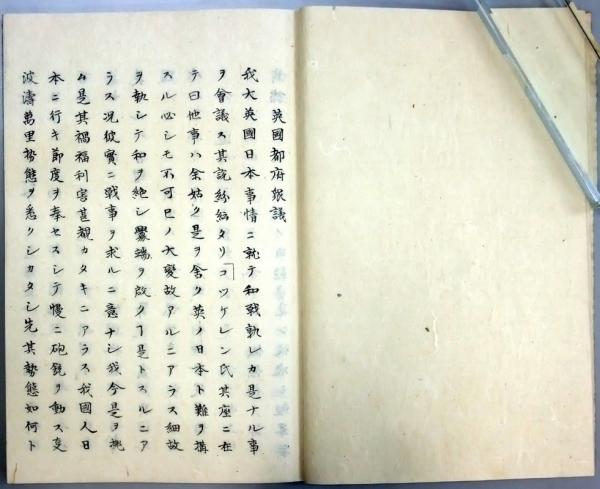 英國都府眾議
我大英國日本事情ニ就テ和戰孰レカ是ナル事
ヲ會議ス其説紛紜タリコツケレン氏其座ニ在
テ曰他事ハ余姑ク是ヲ舍ク英ノ日本ト難ヲ搆
スル必シモ不可已ノ大變故アルニアラス細故
ヲ執シテ和ヲ絶シ釁端ヲ啟クヿ是トスルニア
ラス况彼實ニ戰事ヲ求ルニ意ナシ我今是ヲ
ム是其禍福利害甚覩カタキニアラス我國人日
本ニ行キ節度ヲ奉セスシテ慢ニ砲銃ヲ動ス夐
波濤萬里勢態ヲ悉クシカタシ先其勢態如何ト